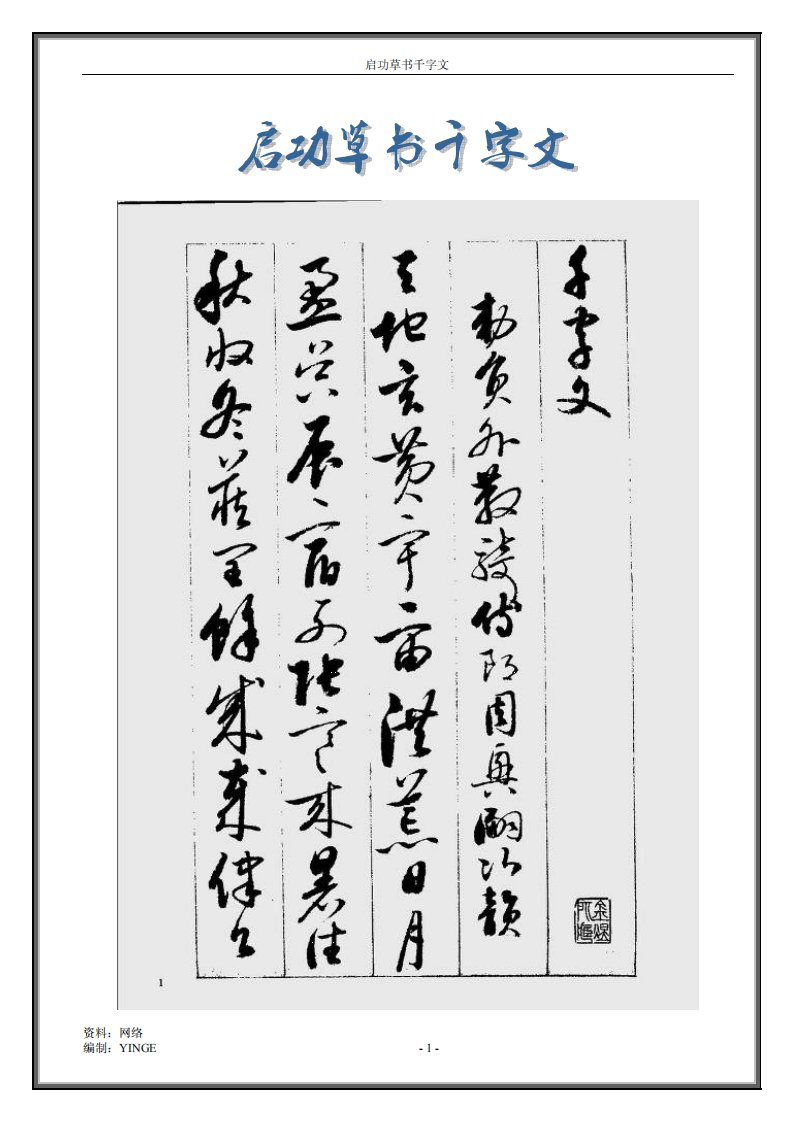 启功草书千字文
启功草书千字文
千字文
勅員外散騎侍郎周興嗣次韻
天地玄黃宇宙洪荒日月
盈昃辰宿列張寒來暑往
秋收冬藏閏餘成歲律呂
1
资料：网络
编制：YINGE
- 1 -